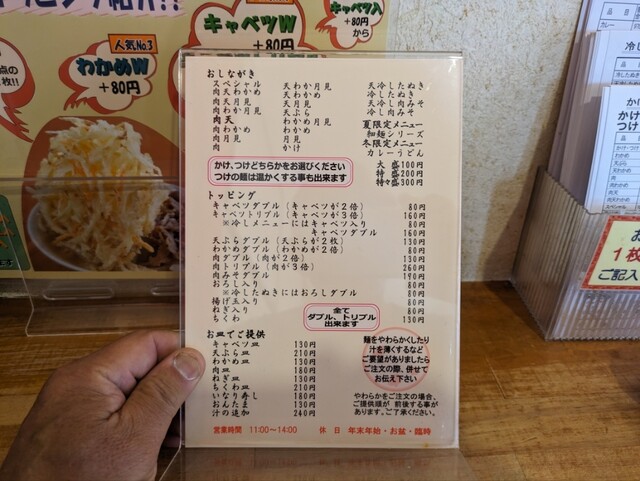 キャベツW
+80円
キャベツ入
+80円
から
人気No.3
わかめW
+80円
おしながき
スペシャル 天わか月見 天冷したぬき
肉天わかめ 天わかめ 冷したぬき
肉天月見 天月見 天冷し肉みそ
肉わか月見 天ぷら 冷し肉みそ
肉天 わかめ月見 夏限定メニュー
肉わかめ わかめ 和麺シリーズ
肉月見 月見 冬限定メニュー
肉 かけ カレーうどん
大盛100円
特盛200円
特々盛300円
かけ、つけどちらかをお選びください
つけの麺は温かくする事も出来ます
トッピング
キャベツダブル(キャベツが2倍) 80円
キャベツトリプル(キャベツが3倍) 160円
※冷しメニューにはキャベツ入り 80円
キャベツダブル 160円
天ぷらダブル(天ぷらが2枚) 130円
わかめダブル(わかめが2倍) 80円
肉ダブル(肉が2倍) 130円
肉トリプル(肉が3倍) 260円
肉みそダブル 190円
おろし入り 80円
※冷したぬきにはおろしダブル 80円
揚げ玉入り 80円
ねぎ入り 80円
ちくわ 130円
全て
ダブル、トリプル
出来ます
お皿でご提供
キャベツ皿 130円
天ぷら皿 210円
わかめ皿 130円
肉皿 180円
ねぎ皿 130円
ちくわ皿 210円
いなり寿し 180円
おんたま 130円
汁の追加 240円
麺をやわらかくしたり
汁を薄くするなど
ご要望がありましたら
ご注文の際、併せて
お伝え下さい
やわらかをご注文の場合、
ご提供順が前後する事が
あります。ご了承ください。
営業時間 11:00〜14:00 休日 年末年始・お盆・臨時
1枚
ご記入